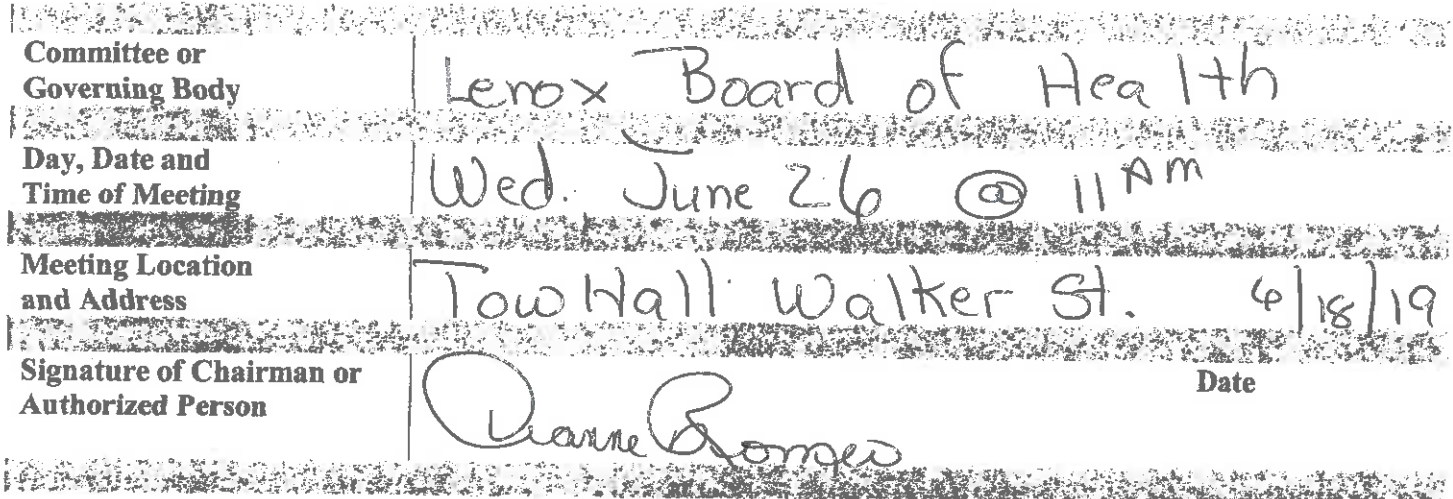 Committee or
Governing Body
Lenox Board of Health
Day, Date and
Time of Meeting
Wed. June 26 @ 11 AM
Meeting Location
and Address
Tow Hall Walker St. 6/18/19
Signature of Chairman or
Authorized Person
Date
Dianne Romeo